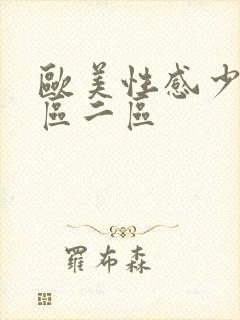 歐美性感少
區二區
羅布森